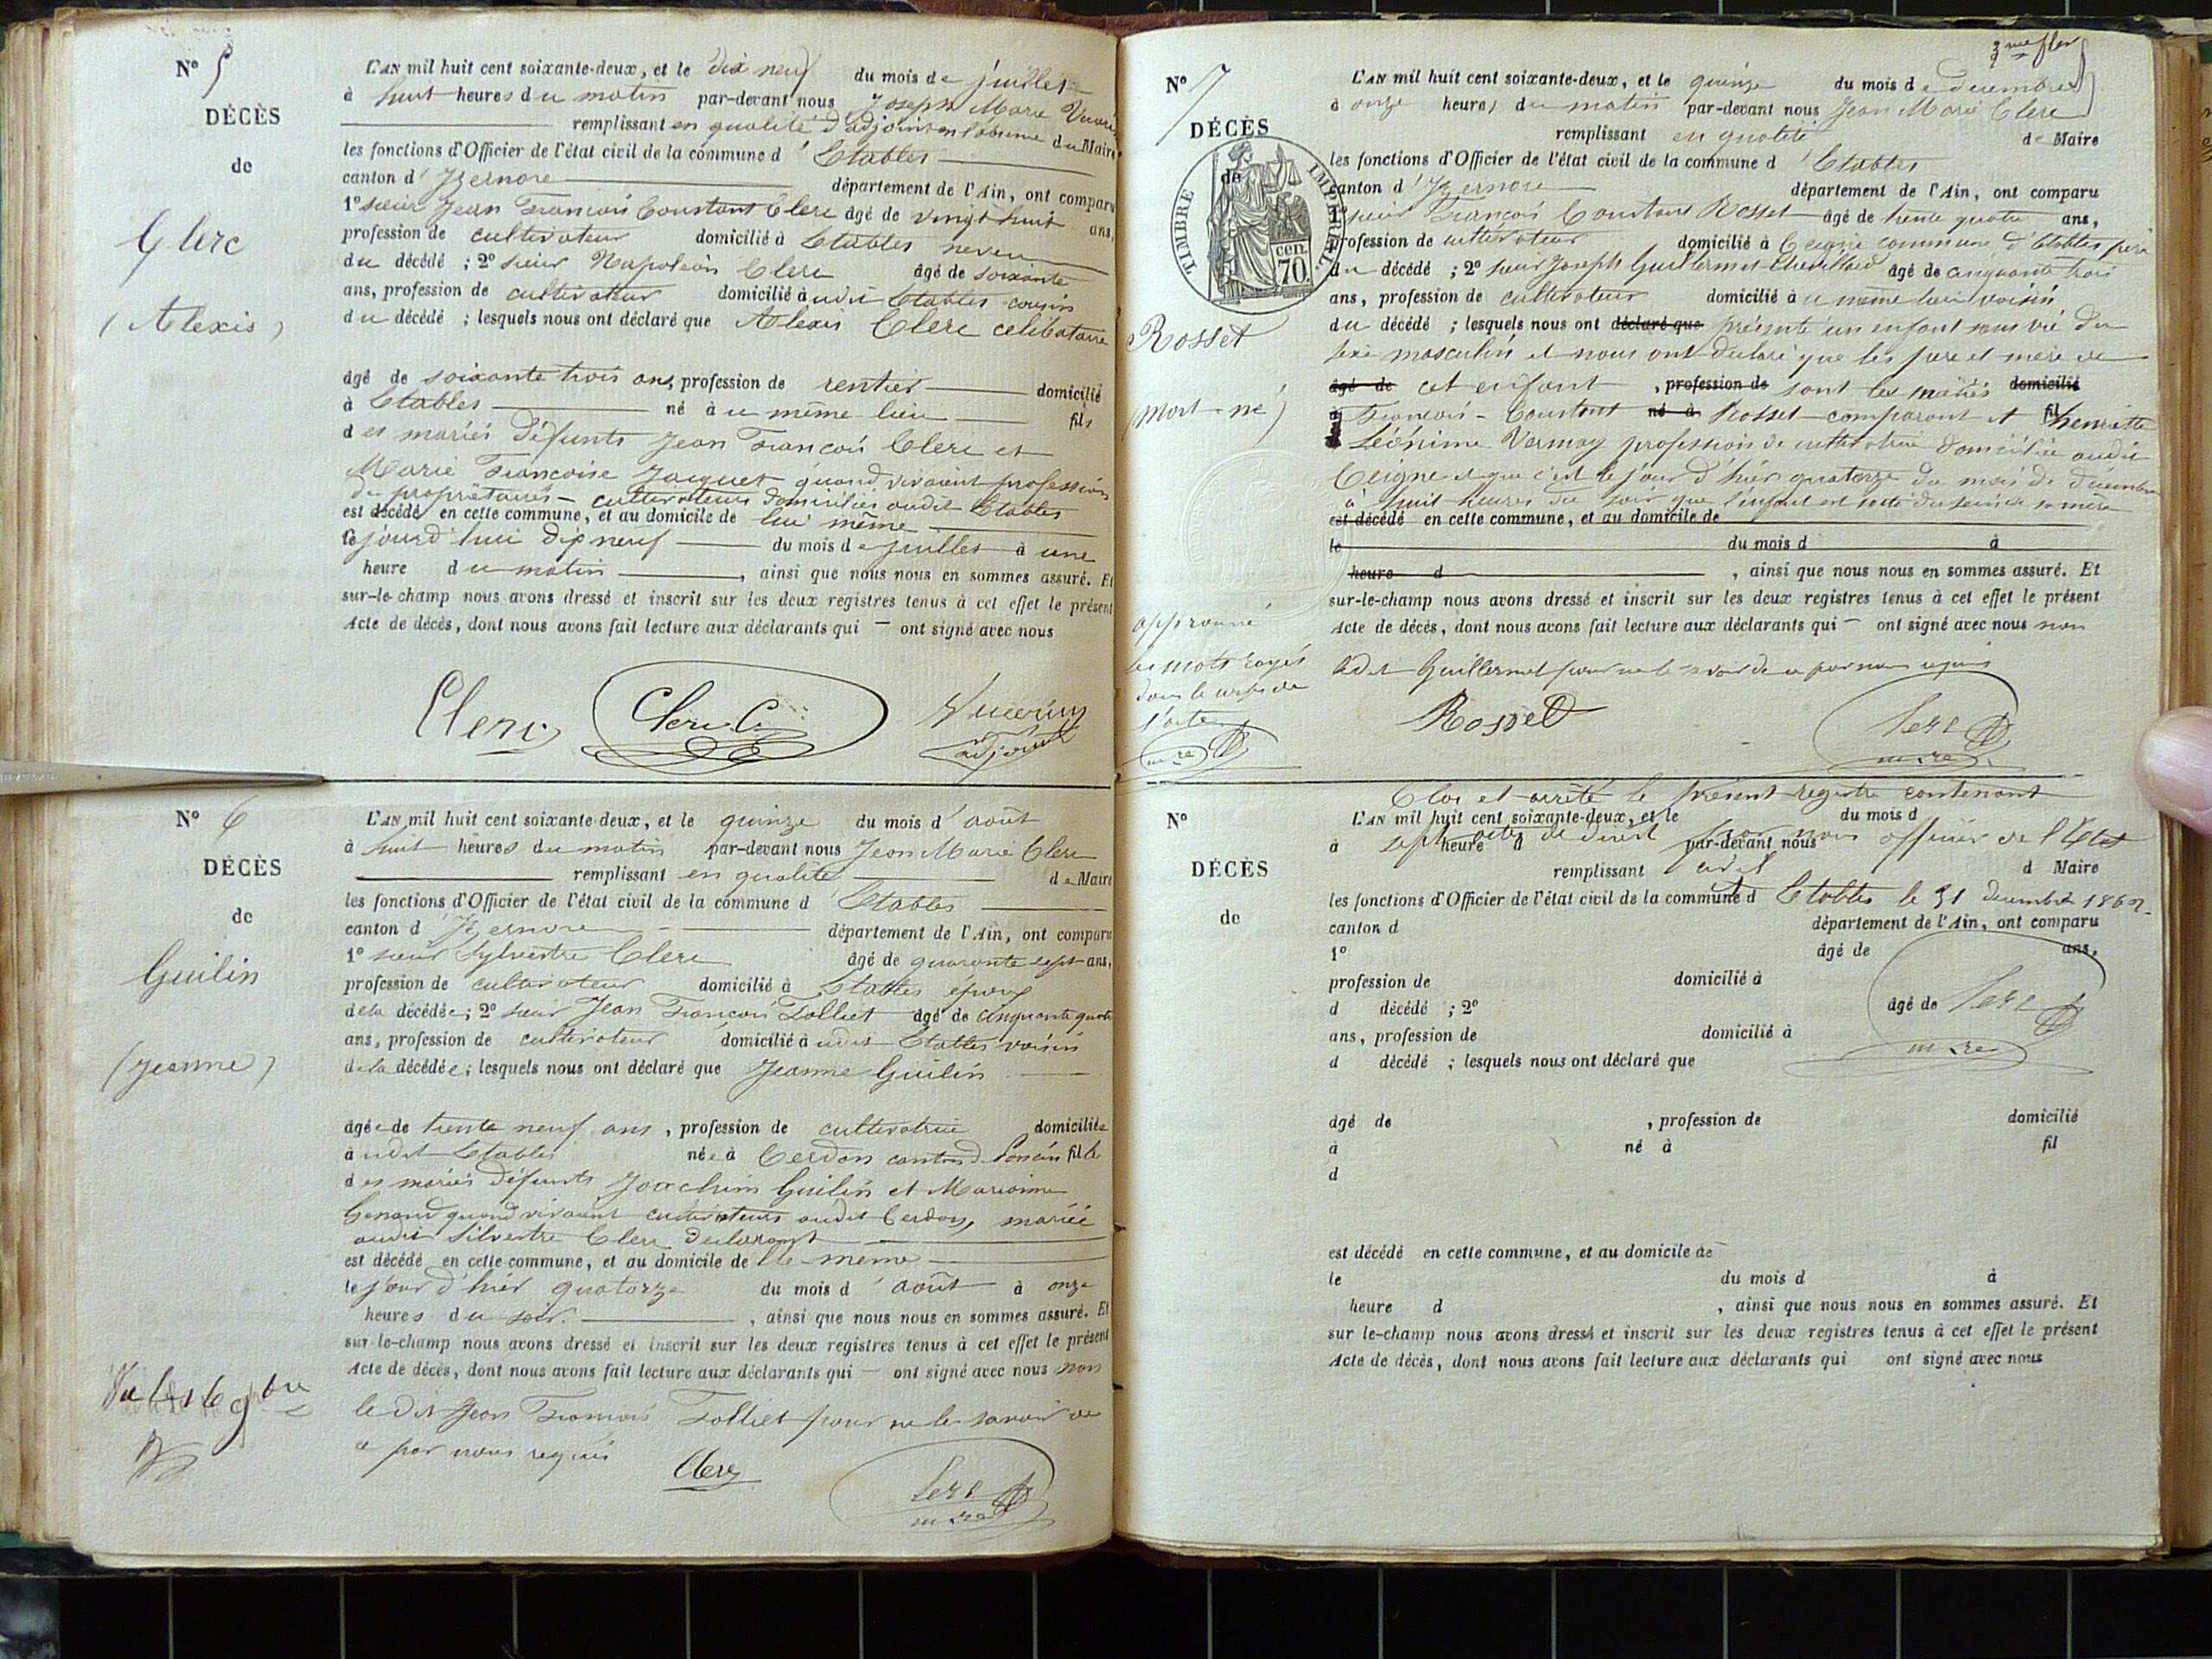 N° 5
DÉCÈS
de
Clerc
(Alexis)
L'AN mil huit cent soixante-deux, et le dix neuf du mois de juillet
à huit heures du matin par-devant nous Joseph Marie
remplissant en qualité d'adjoint en l'absence du Maire
les fonctions d'Officier de l'état civil de la commune d'Etables
canton d'Izernore département de l'Ain, ont comparu
1° sieur Jean François Constant Clerc âgé de vingt huit ans,
profession de cultivateur domicilié à Etables neveu
du décédé ; 2° sieur Napoléon Clerc âgé de soixante
ans, profession de cultivateur domicilié à udit Etables cousin
du décédé ; lesquels nous ont déclaré que Alexis Clerc célibataire
âgé de soixante trois ans, profession de rentier domicilié
à Etables né à u même lieu fils
des mariés défunts Jean François Clerc et
Marie Françoise Jacquet quand vivaient profession
de propriétaires-cultivateurs domiciliés audit Etables
est décédé en cette commune, et au domicile de lui même
cejourd'hui dix neuf du mois de juillet à une
heure du matin, ainsi que nous nous en sommes assuré. Et
sur-le-champ nous avons dressé et inscrit sur les deux registres tenus à cet effet le présent
Acte de décès, dont nous avons fait lecture aux déclarants qui ont signé avec nous
Clerc Clerc C.
adjoint
N° 6
DÉCÈS
de
Guilin
(Jeanne)
L'AN mil huit cent soixante-deux, et le quinze du mois d'août
à huit heures du matin par-devant nous Jean Marie Clerc
remplissant en qualité de Maire
les fonctions d'Officier de l'état civil de la commune d'Etables
canton d'Izernore département de l'Ain, ont comparu
1° sieur Sylvestre Clerc âgé de quarante sept ans,
profession de cultivateur domicilié à Etables époux
de la décédée ; 2° sieur Jean François Tolliet âgé de cinquante quatre
ans, profession de cultivateur domicilié à udit Etables voisin
de la décédée ; lesquels nous ont déclaré que Jeanne Guilin
âgée de trente neuf ans, profession de cultivatrice domiciliée
à udit Etables née à Cerdon canton de Poncin fille
des mariés défunts Joachim Guilin et Marianne
quand vivaient cultivateurs audit Cerdon, mariée
audit Silvestre Clerc déclarant
est décédé en cette commune, et au domicile de lle-même
le jour d'hier quatorze du mois d'août à onze
heures du soir, ainsi que nous nous en sommes assuré. Et
sur-le-champ nous avons dressé et inscrit sur les deux registres tenus à cet effet le présent
Acte de décès, dont nous avons fait lecture aux déclarants qui ont signé avec nous non
le dit Jean François Tolliet pour ne le savoir de
ce par nous requis
Clerc
Clerc
mre
Vu le 16 9bre
N° 7
DÉCÈS
de
TIMBRE IMPÉRIAL
cen.
70
Rosset
(mort-né)
L'AN mil huit cent soixante-deux, et le quinze du mois de décembre
à onze heures du matin par-devant nous Jean Marie Clerc
remplissant en qualité de Maire
les fonctions d'Officier de l'état civil de la commune d'Etables
canton d'Izernore département de l'Ain, ont comparu
1° sieur François Constant Rosset âgé de trente quatre ans,
profession de cultivateur domicilié à Ceigne commune d'Etables père
du décédé ; 2° sieur Joseph Guillermet Chevillard âgé de cinquante trois
ans, profession de cultivateur domicilié à u même lieu voisin
du décédé ; lesquels nous ont déclaré que présenté un enfant sans vie du
sexe masculin et nous ont déclaré que les père et mère de
âgé de cet enfant, profession de sont les mariés domicilié
à François-Constant né à Rosset comparant et fil henriette
Léonime Vermay profession de cultivatrice domiciliée audit
Ceigne et que c'est le jour d'hier quatorze du mois de décembre
à huit heures du soir que l'enfant est sorti du sein de sa mère
est décédé en cette commune, et au domicile de
le du mois d à
heure d , ainsi que nous nous en sommes assuré. Et
sur-le-champ nous avons dressé et inscrit sur les deux registres tenus à cet effet le présent
Acte de décès, dont nous avons fait lecture aux déclarants qui ont signé avec nous non
ledit Guillermet pour ne le savoir de ce par nous requis
approuvé
les mots rayés
dans le corps de
l'acte
mre
Rosset
Clerc
mre
Clos et arrêté le présent registre contenant
sept actes de décès par nous officier de l'Etat
civil d'Etables le 31 décembre 1862.
Clerc
mre
N°
DÉCÈS
de
L'AN mil huit cent soixante-deux, et le du mois d
à heure d par-devant nous
remplissant d Maire
les fonctions d'Officier de l'état civil de la commune d
canton d département de l'Ain, ont comparu
1° âgé de ans,
profession de domicilié à
d décédé ; 2° âgé de
ans, profession de domicilié à
d décédé ; lesquels nous ont déclaré que
âgé de , profession de domicilié
à né à fil
d
est décédé en cette commune, et au domicile de
le du mois d à
heure d , ainsi que nous nous en sommes assuré. Et
sur le-champ nous avons dressé et inscrit sur les deux registres tenus à cet effet le présent
Acte de décès, dont nous avons fait lecture aux déclarants qui ont signé avec nous